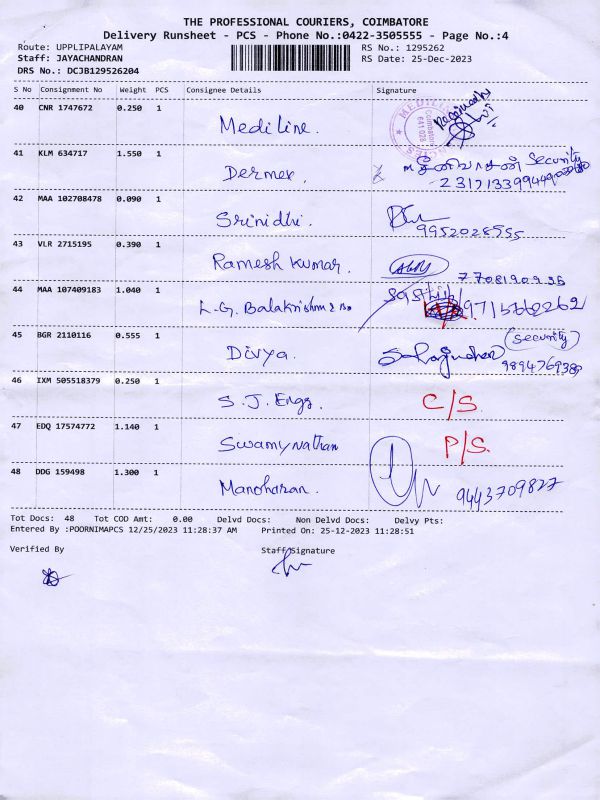 THE PROFESSIONAL COURIERS, COIMBATORE
Delivery Runsheet - PCS - Phone No.:0422-3505555 - Page No.:4
Route: UPPLIPALAYAM RS No.: 1295262
Staff: JAYACHANDRAN RS Date: 25-Dec-2023
DRS No.: DCJB129526204
S No Consignment No Weight PCS Consignee Details Signature
40 CNR 1747672 0.250 1
Mediline.
41 KLM 634717 1.550 1
Dermex. Security
42 MAA 102708478 0.090 1
Srinidhi. 9952028555
43 VLR 2715195 0.390 1
Ramesh Kumar.
44 MAA 107409183 1.040 1
L.G. Balakrishnan & Bro
45 BGR 2110116 0.555 1 (Security)
Divya. 9894769389
46 IXM 505518379 0.250 1
S.J. Engg. C/S.
47 EDQ 17574772 1.140 1
Swamynathan P/S.
48 DDG 159498 1.300 1
Manoharan. 9443709827
Tot Docs: 48 Tot COD Amt: 0.00 Delvd Docs: Non Delvd Docs: Delvy Pts:
Entered By :POORNIMAPCS 12/25/2023 11:28:37 AM Printed On: 25-12-2023 11:28:51
Verified By Staff Signature